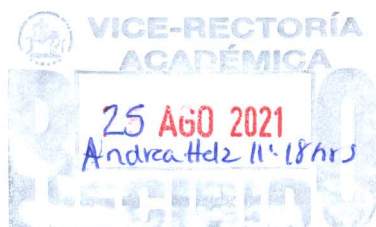 VICE-RECTORÍA
ACADÉMICA
25 AGO 2021
Andrea Helz 11:18 hrs
RECIBIDO